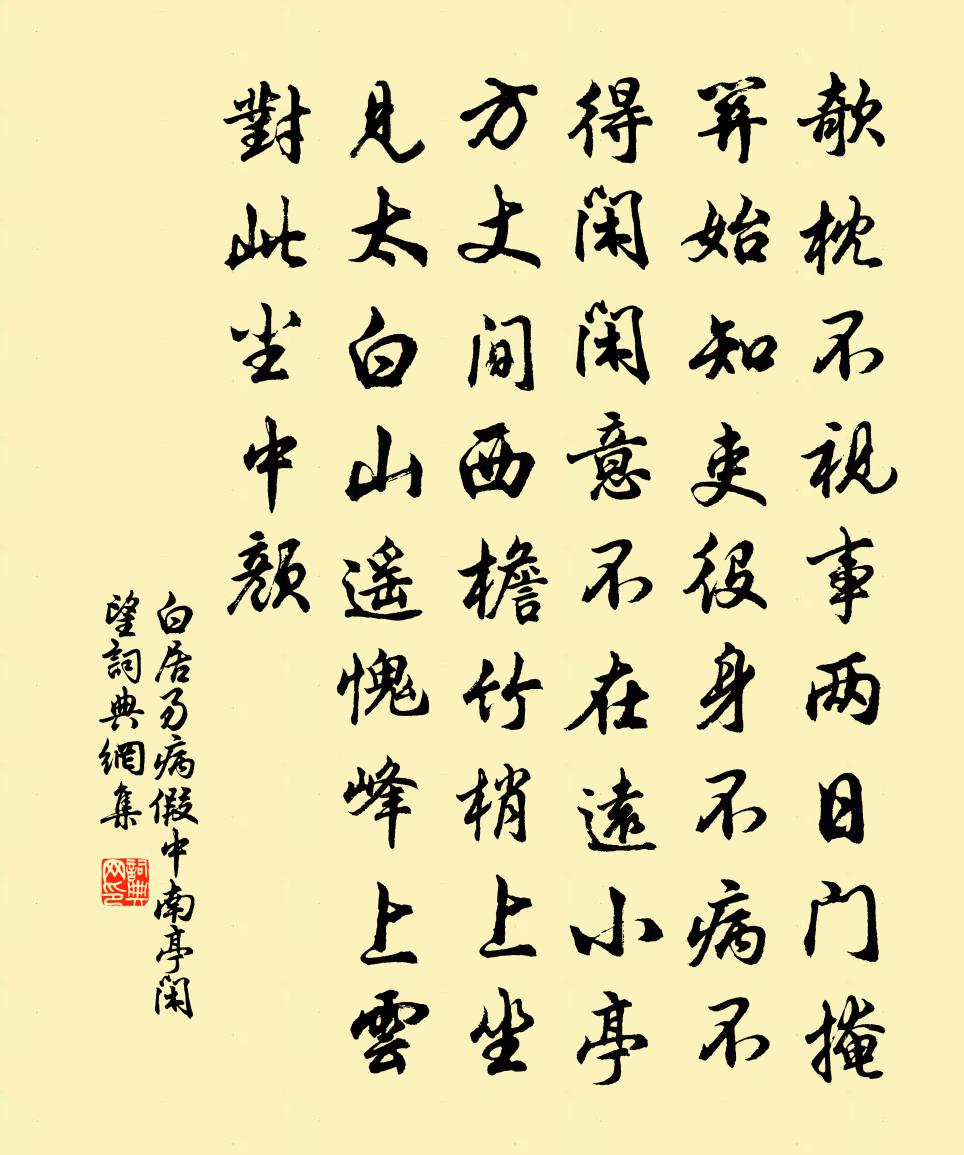 欹枕不視事两日门掩
关始知吏役身不病不
得闲闲意不在遠小亭
方丈间西檐竹梢上坐
見太白山遥愧峰上雲
對此尘中颜
白居易病假中南亭闲
望詞典網集
詞典网印